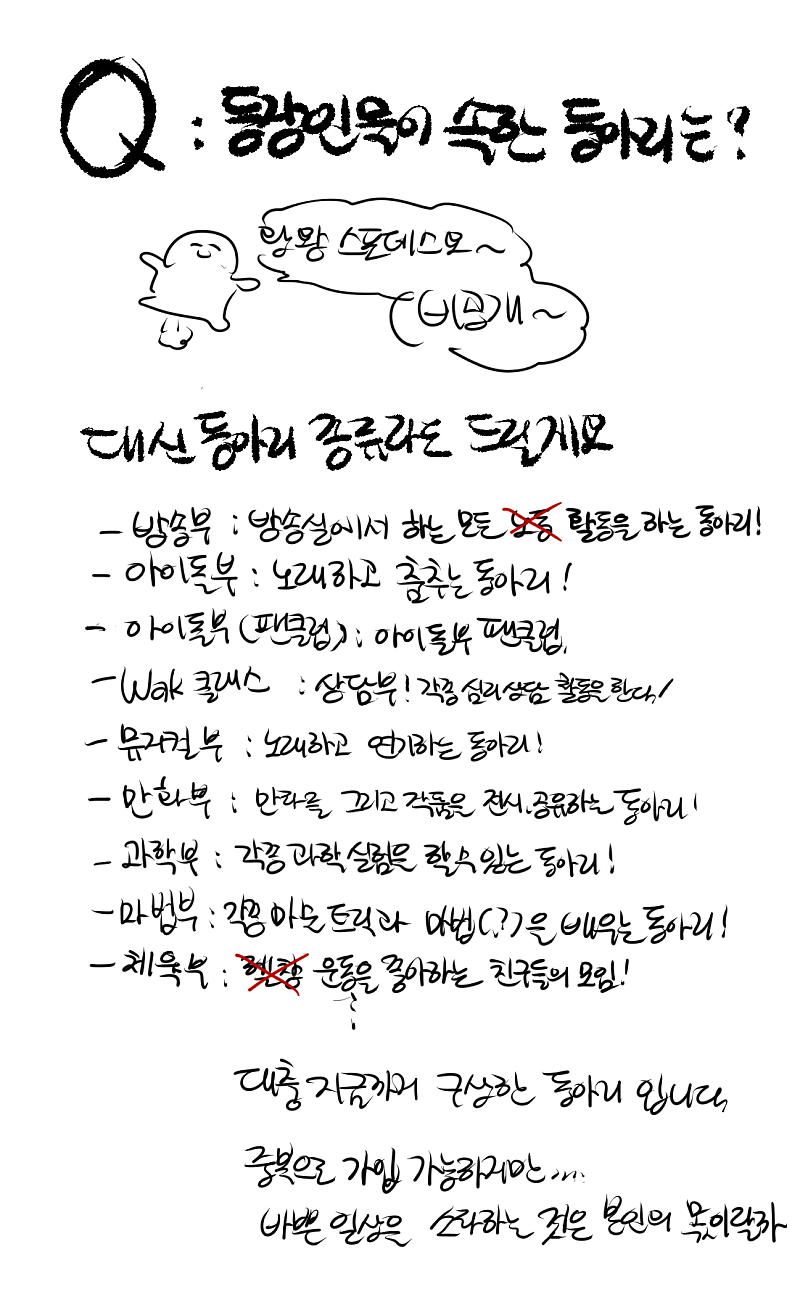 Q : 등장인물이 속한 동아리는?
왕 스포데스요~
(비공개~
대신 동아리 종류라도 드릴게요
- 방송부 : 방송실에서 하는 모든 노동 활동을 하는 동아리!
- 아이돌부 : 노래하고 춤추는 동아리!
- 아이돌부 (팬클럽) : 아이돌부 팬클럽.
- Wak 클래스 : 상담부! 각종 심리상담 활동을 한다!
- 뮤지컬부 : 노래하고 연기하는 동아리!
- 만화부 : 만화를 그리고 작품을 전시, 공유하는 동아리!
- 과학부 : 각종 과학 실험을 할 수 있는 동아리!
- 마법부 : 각종 마술 트릭과 마법(?)을 배우는 동아리!
- 체육부 : 헬창 운동을 좋아하는 친구들의 모임!
대충 지금까지 구상한 동아리 입니다.
중복으로 가입 가능하지만....
바쁜 일상을 소화하는 것은 본인의 몫이랄까